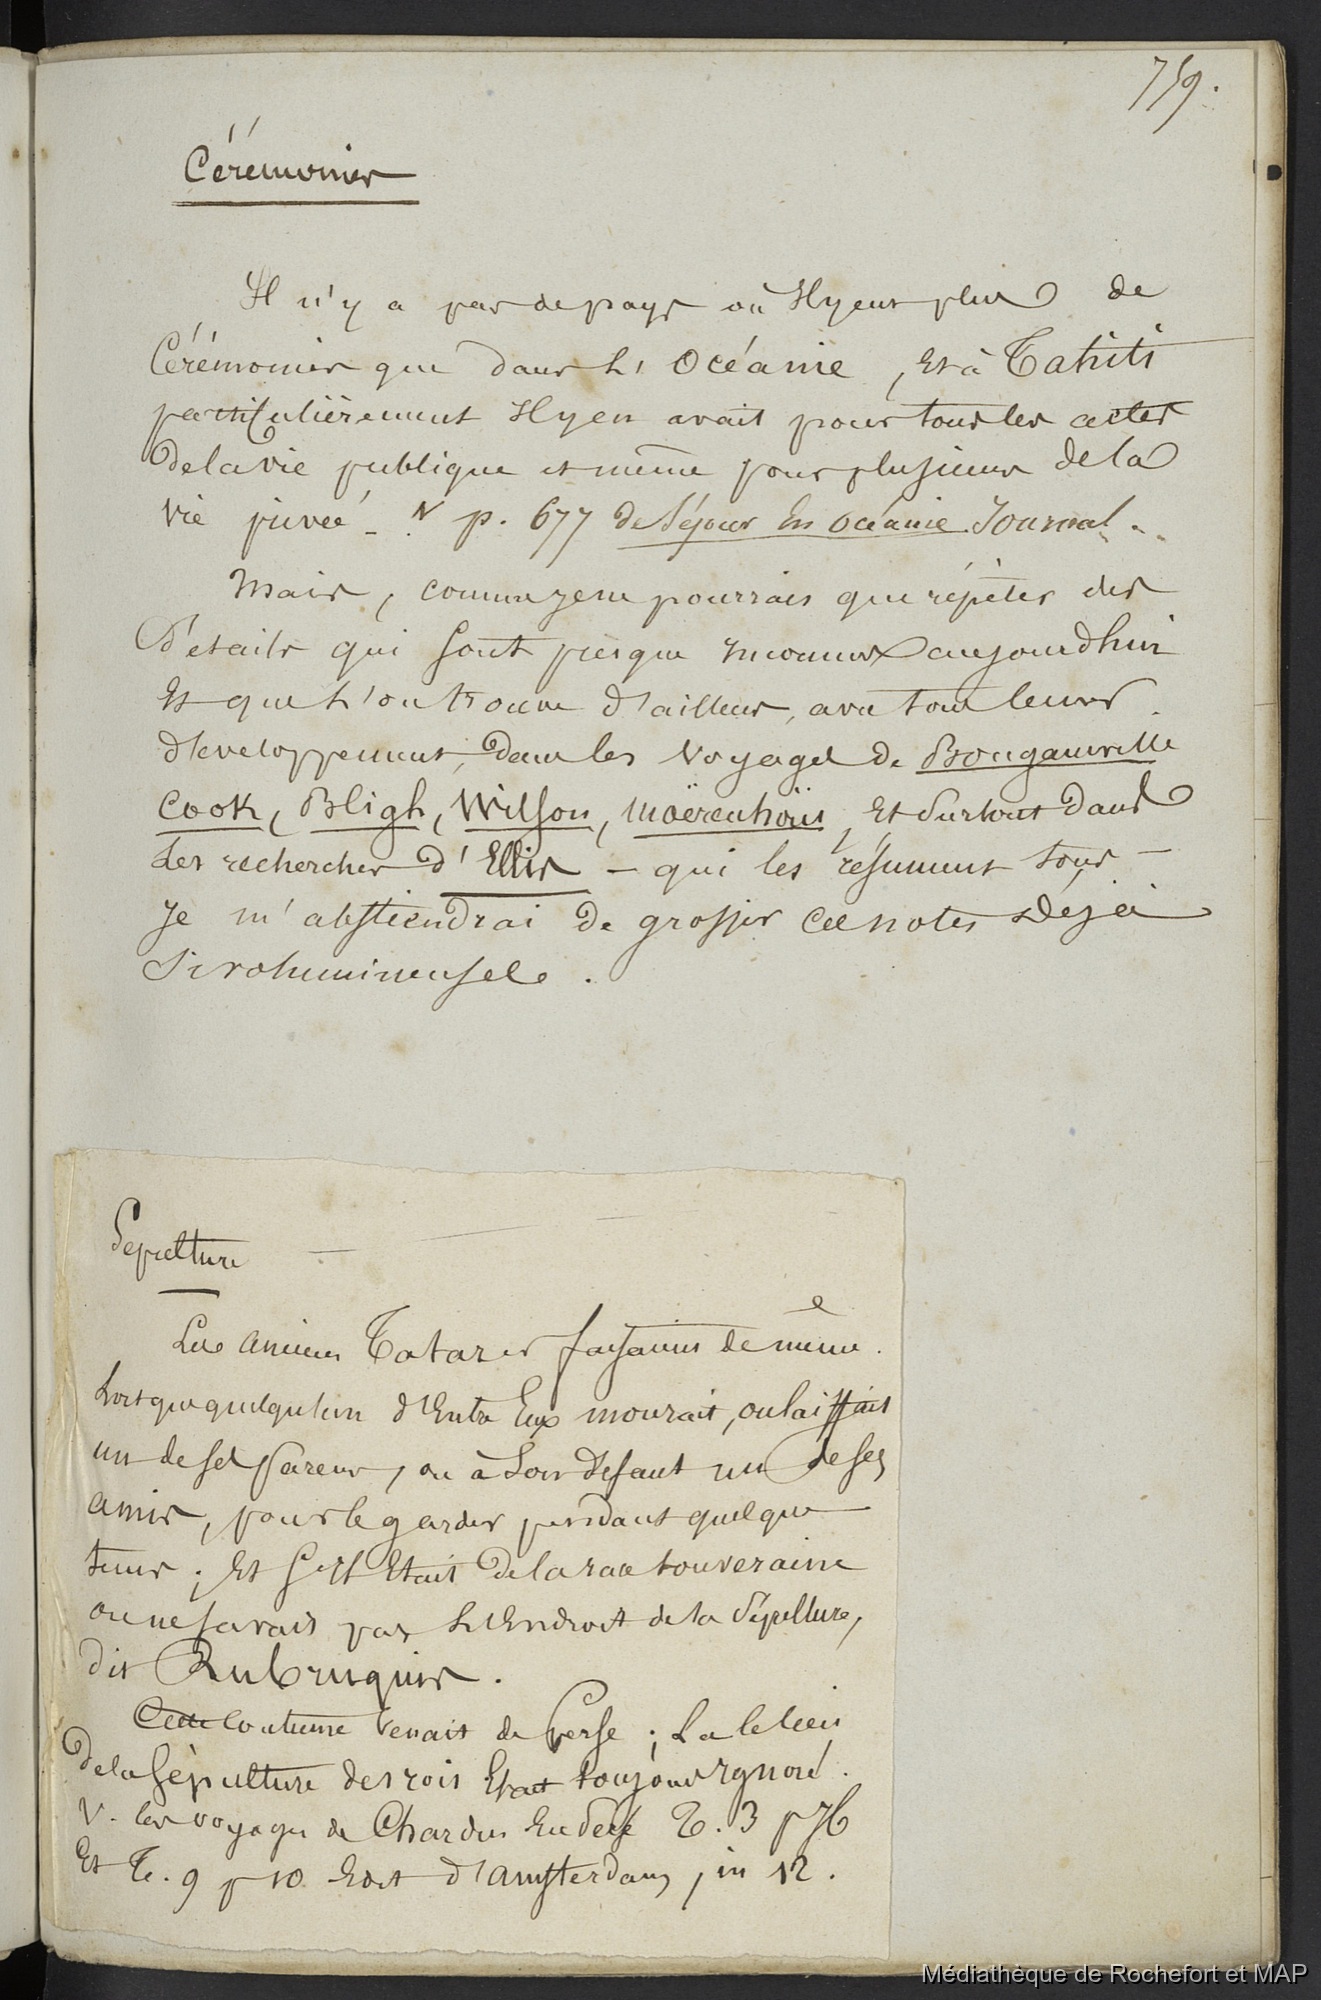 759.
Cérémonies
Il n'y a pas de pays où Il y eut plus de
Cérémonies que dans L'Océanie, Et à Tahiti
particulièrement Il y en avait pour tous les actes
de la vie publique et même pour plusieurs de la
vie privée - V p. 677 de Séjour En Océanie Journal.
Mais, comme je ne pourrais que répéter des
Détails qui sont presque inconnus aujourd'hui
Et que L'on trouve d'ailleurs, avec tous leurs
développements, dans les voyages de Bougainville
Cook, Bligh, Wilson, Moërenhoüs, Et surtout dans
Les recherches d'Ellis - qui les résument tous -
Je m'abstiendrai de grossir ces notes Déjà
Si volumineuses.
Sépulture
Les anciens Tatares faisaient de même.
Lorsque quelqu'un d'Entre Eux mourait, on laissait
un de ses parens, ou à Son défaut un de ses
amis, pour le garder pendant quelque
tems ; Et s'Il Etait de la race souveraine
on ne savait pas L'Endroit de la Sépulture,
dit Rubruquis.
Cette Coutume venait de Perse ; La le lieu
de la Sépulture des rois Etait toujours Ignoré.
V. les voyages de Chardin En Perse T. 3 p
Et T. 9 p 10 Edit d'Amsterdam, in 12.
Médiathèque de Rochefort et MAP